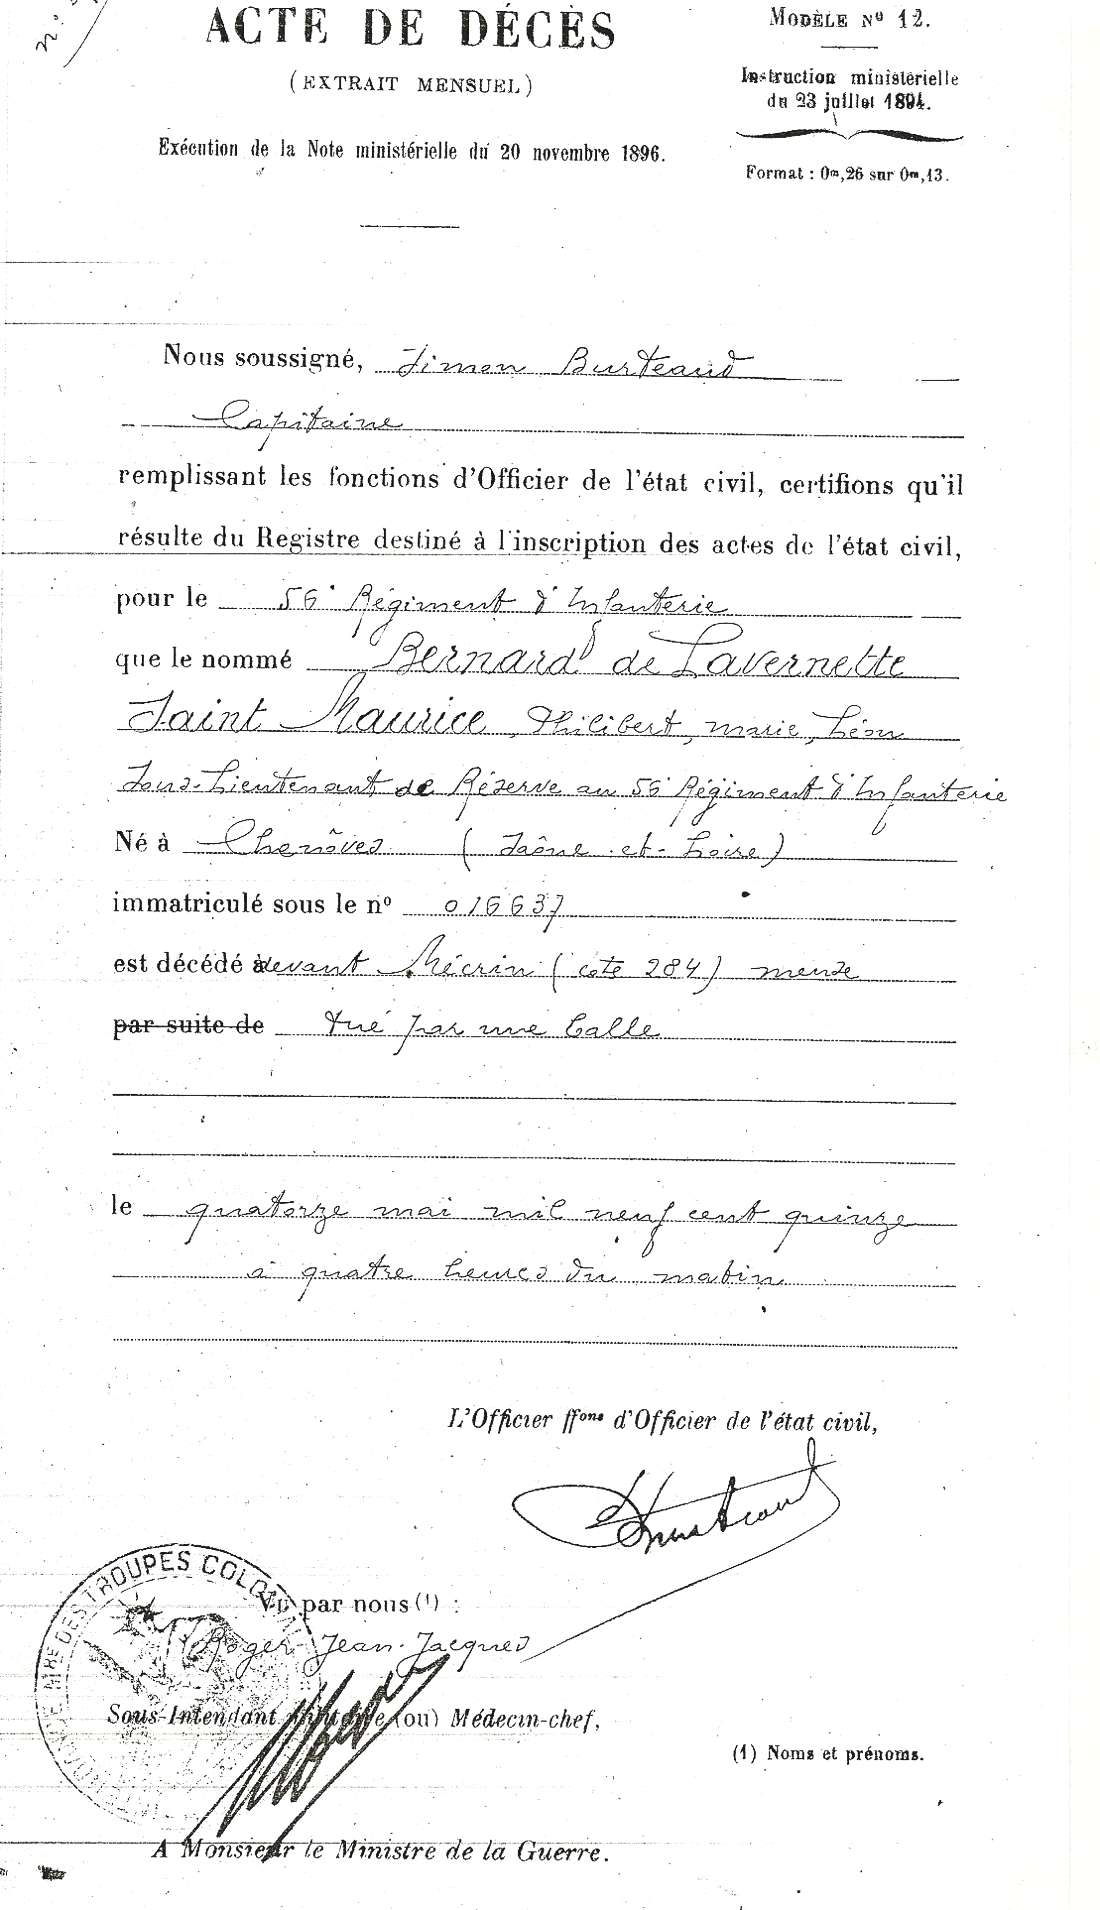 n°
ACTE DE DÉCÈS
(EXTRAIT MENSUEL)
Exécution de la Note ministérielle du 20 novembre 1896.
MODÈLE No 12.
Instruction ministérielle
du 23 juillet 1894.
Format : 0m,26 sur 0m,13.
Nous soussigné, Simon Burteaud
Capitaine
remplissant les fonctions d'Officier de l'état civil, certifions qu'il
résulte du Registre destiné à l'inscription des actes de l'état civil,
pour le 56e Régiment d'Infanterie
que le nommé Bernard de Lavernette
Saint Maurice, Philibert, marie, Léon
Sous-Lieutenant de Réserve au 56e Régiment d'Infanterie
Né à Chenôves (Saône-et-Loire)
immatriculé sous le no 016637
est décédé à devant Mécrin (cote 284) meuse
par suite de tué par une balle
le quatorze mai mil neuf cent quinze
à quatre heures du matin
L'Officier ffons d'Officier de l'état civil,
Vu par nous (1) :
Roger Jean-Jacques
Sous-Intendant militaire (ou) Médecin-chef,
INTENDANCE MRE DES TROUPES COLONIALES
(1) Noms et prénoms.
A Monsieur le Ministre de la Guerre.